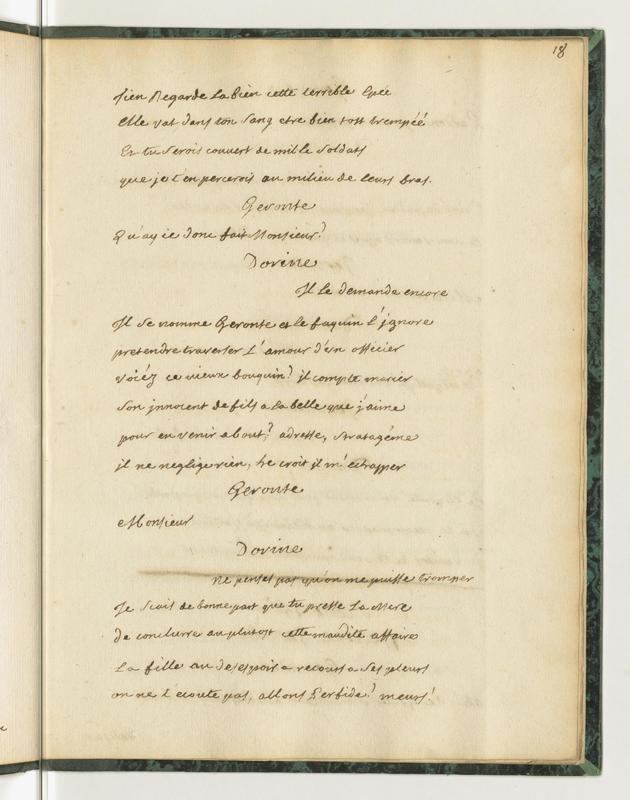 18
Tien Regarde La bien cette terrible Epée
Elle vat dans ton Sang etre bien tost trempéé
Et tu serois couvert de mille soldats
que je t'en percerois au milieu de leurs bras.
Geronte
Qu'ay ie donc fait Monsieur?
Dorine
Il le demande encore
Il se nomme Geronte et le faquin l'jgnore
pretendre traverser L'amour d'un officier
voiéz ce vieux bouquin? jl compte marier
son jnnocent de fils a la belle que j'aime
pour en venir a bout? adresse, stratagéme
jl ne neglige rien, he croit jl m'echapper
Geronte
Monsieur
Dorine
ne penses pas qu'on me puisse tromper
Je scais de bonne part que tu presse La Mere
de conclurre au plutost cette maudite affaire
La fille au desespoir a recours a ses pleurs
on ne l'ecoute pas, allons Perfide? meurs!